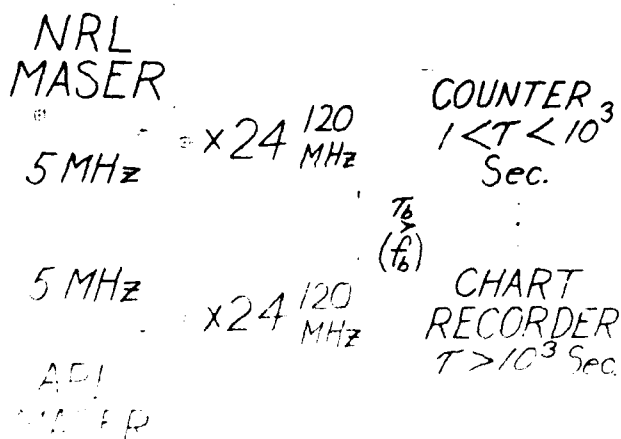 NRL
MASER
5 MHz
×24 120 MHz
COUNTER
1 < τ < 10³
Sec.
τb
>
(fb)
5 MHz
×24 120 MHz
CHART
RECORDER
τ > 10³ Sec.